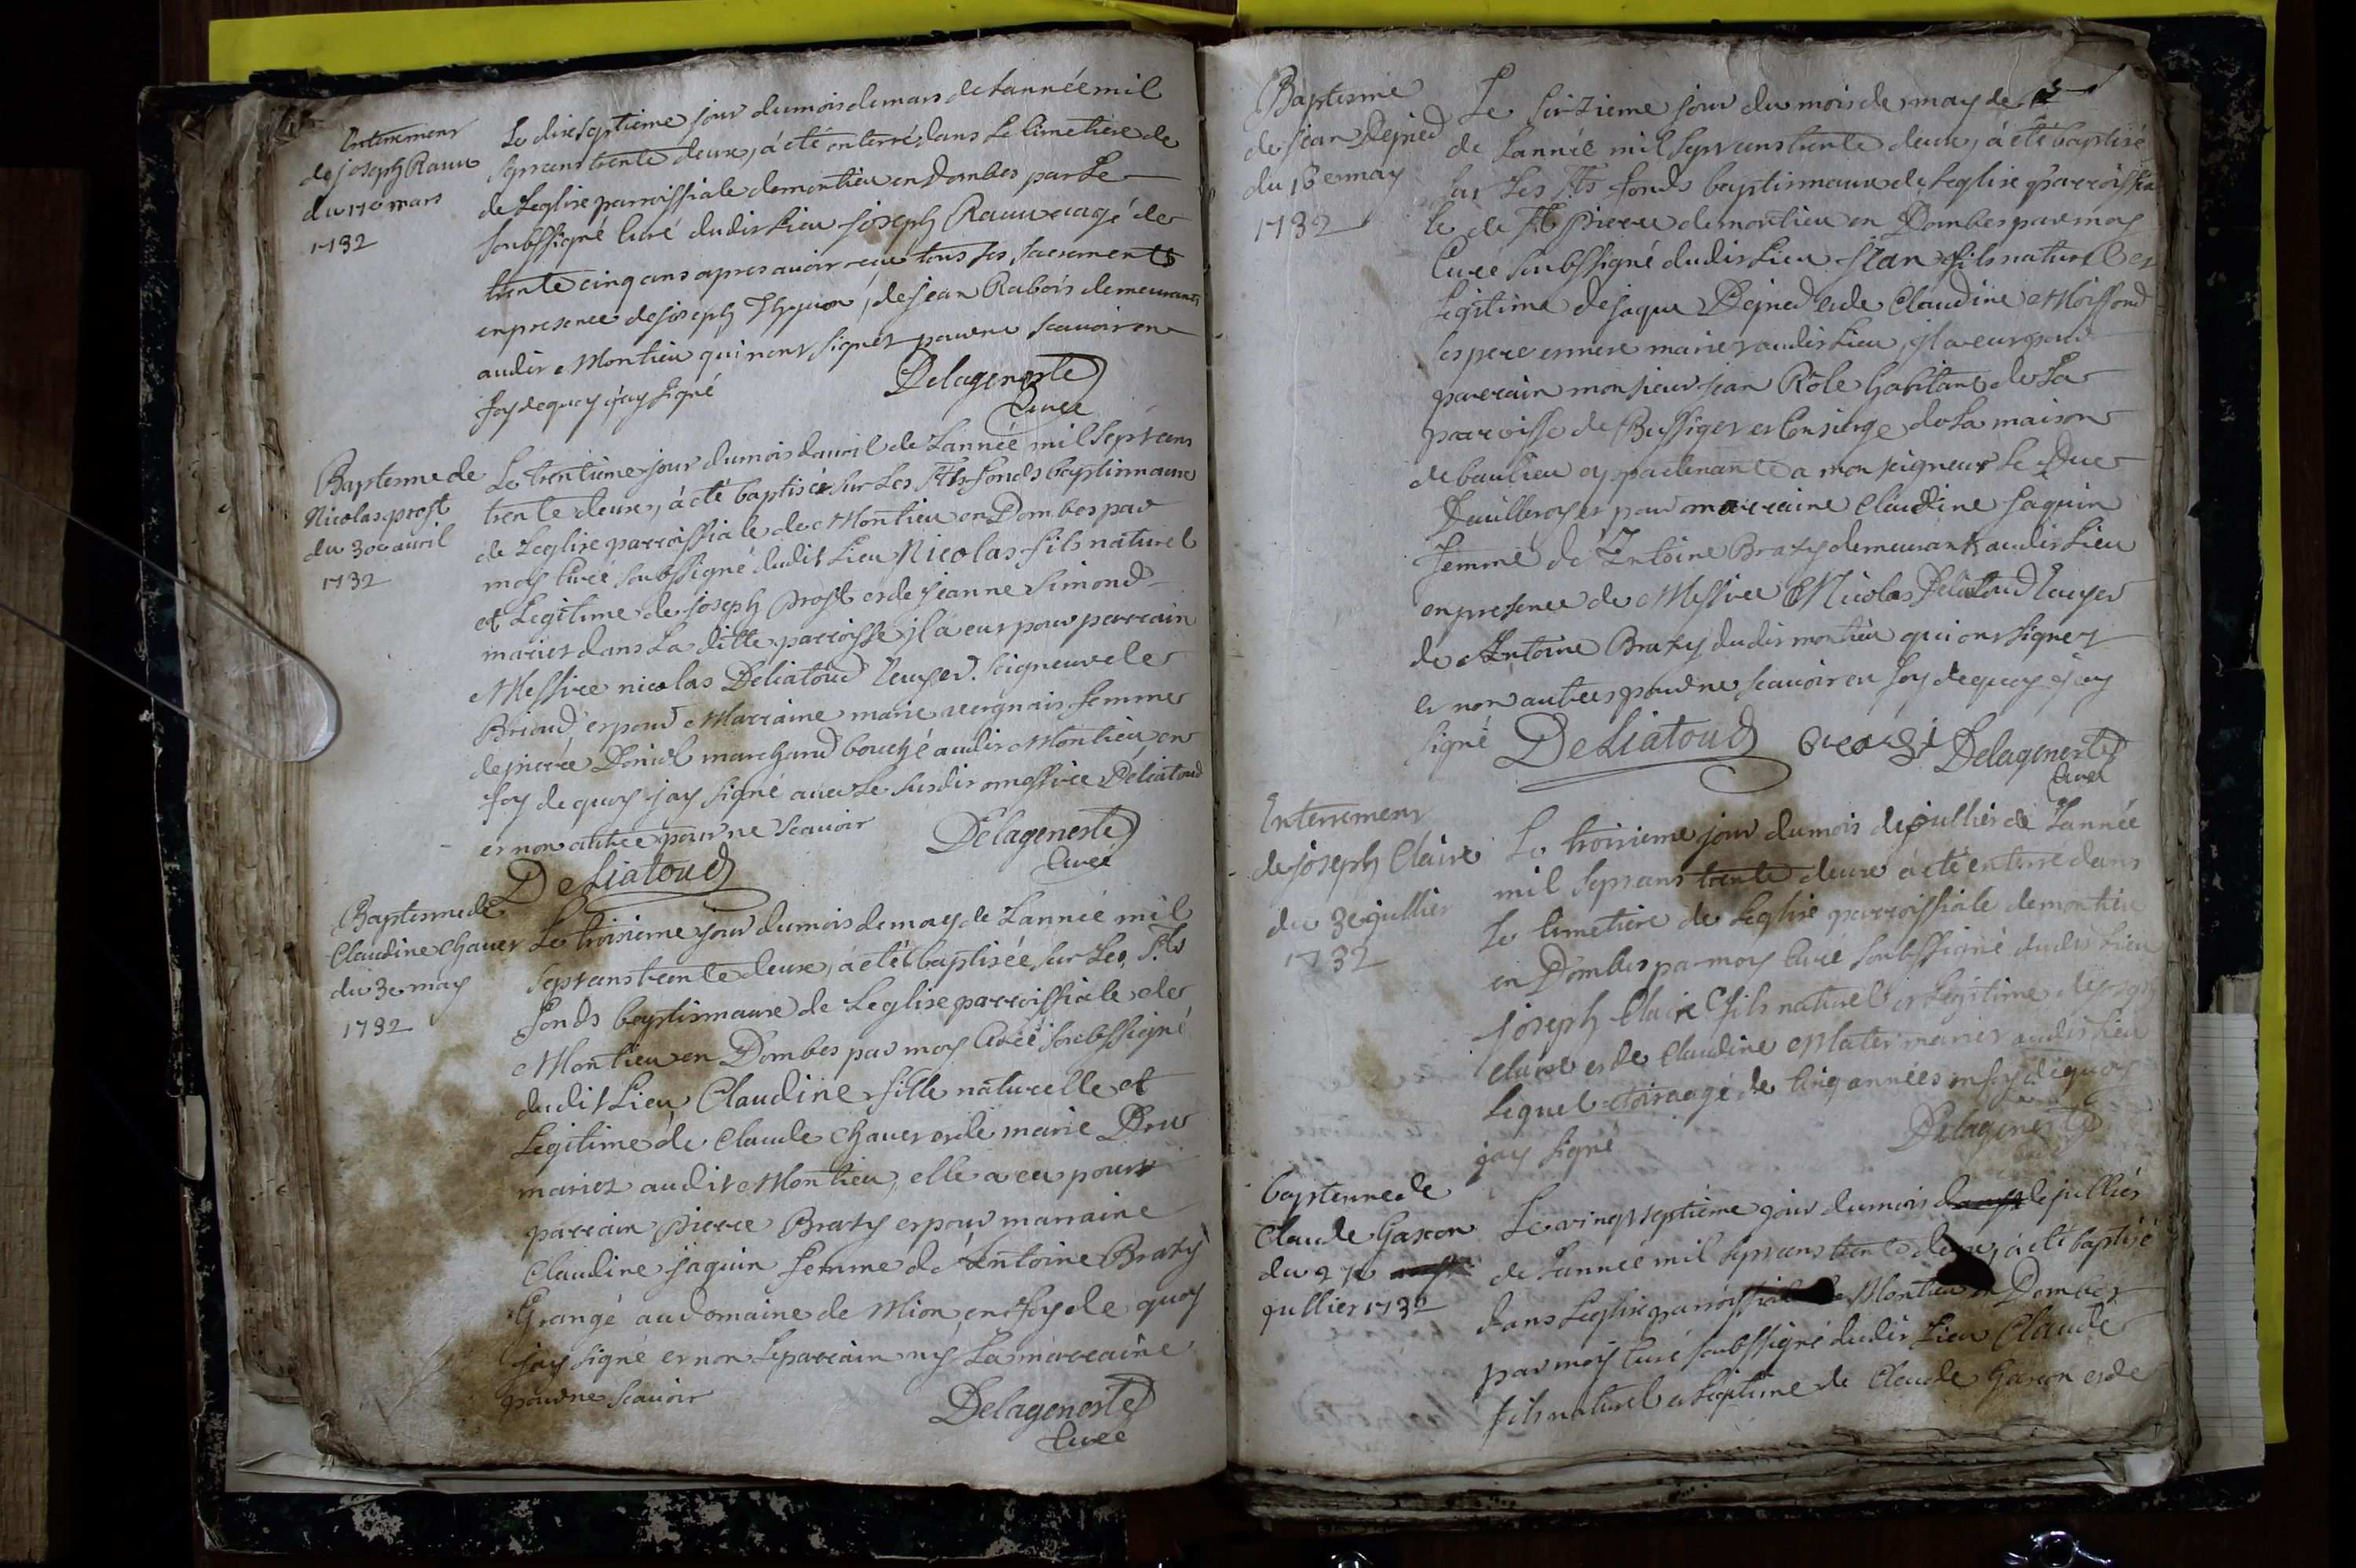 Enterrement
de joseph Ranu
du 17e mars
1732
Le dixseptieme jour du mois de mars de Lannée mil
sept cens trente deux, a été enterré dans Le cimetiere de
de Leglise parroissiale de montieu en Dombes par Le
soubssigné Curé dudit Lieu joseph agé de
trente cinq ans apres avoir receu tous ses sacrements
en presence de joseph de jean Rabois demeurants
audit Montieu qui nont signés pour ne scavoir en
foy de quoy j'ay signé
Delageneste
Curé
Baptesme de
Nicolas prost
du 30e avril
1732
Le trentieme jour du mois davril de Lannée mil sept cens
trente deux, a été baptisé sur Les Sts fonds baptismaux
de Leglise parroissiale de Montieu en Dombes par
moy Curé soubssigné dudit Lieu Nicolas fils naturel
et Legitime de joseph prost et de jeanne Simond
mariez dans La ditte parroisse jl a eut pour parrain
Messire nicolas Deliatoud Seigneur de
et pour Marraine marie femme
de pierre marchand bouché audit Montieu en
foy de quoy jay signé avec Le susdit messire Deliatoud
et non autre pour ne scavoir
Delageneste
Curé
DeLiatoud
Baptesme de
Claudine Chauer
du 3e may
1732
Le troisieme jour du mois de may de Lannée mil
sept cens trente deux, a été baptisée sur Les Sts
fonds baptismaux de Leglise parroissiale de
Montieu en Dombes par moy Curé soubssigné
dudit Lieu Claudine fille naturelle et
Legitime de Claude Chauer et de marie Dru
mariez audit Montieu, elle a eu pour
parrain pierre Brazy et pour marraine
Claudine jaquin femme de Antoine Brazy
Grangé au domaine de Mion, en foy de quoy
jay signé et non Le parrain ny La marraine
pour ne scavoir
Delageneste
Curé
Baptesme
de jean Dejned
du 16e may
1732
Le seizieme jour du mois de may de
de Lannée mil sept cens trente deux, a été baptisé
sur Les Sts fonds baptismaux de Leglise parroissia
le de St pierre de montieu en Dombes par moy
Curé soubssigné dudit Lieu jean fils naturel et
Legitime de jaque Dejned et de Claudine Moissond
ses pere et mere mariez audit Lieu, jl a eut pour
parrain monsieur jean Rôle habitant de La
parroisse de Bussiges et Consierge de La maison
de baulieu appartenante a monseigneur Le Duc
et pour marraine Claudine jaquin
femme de Antoine Brazy demeurant audit Lieu
en presence de Messire Nicolas Deliatoud
de Antoine Brazy dudit montieu qui ont signez
et non autres pour ne scavoir en foy de quoy jay
signé
DeLiatoud
Delageneste
Curé
Enterrement
de joseph Claire
du 3e jullier
1732
Le troisieme jour du mois de jullier de Lannée
mil sept cens trente deux a été enterré dans
Le cimetiere de Leglise parroissiale de montieu
en Dombes par moy Curé soubssigné dudit Lieu
joseph Claire fils naturel et Legitime de joseph
Claire et de Claudine mariez audit Lieu
Lequel etoit agé de Cinq années en foy de quoy
jay signé
Delageneste
Curé
baptesme de
Claude Gascon
du 27e
jullier 1732
Le vingt septieme jour du mois de jullier
de Lannée mil sept cens trente deux, a été baptisé
dans Leglise parroissiale de Montieu en Dombes
par moy Curé soubssigné dudit Lieu Claude
fils naturel et Legitime de Claude Gascon et de